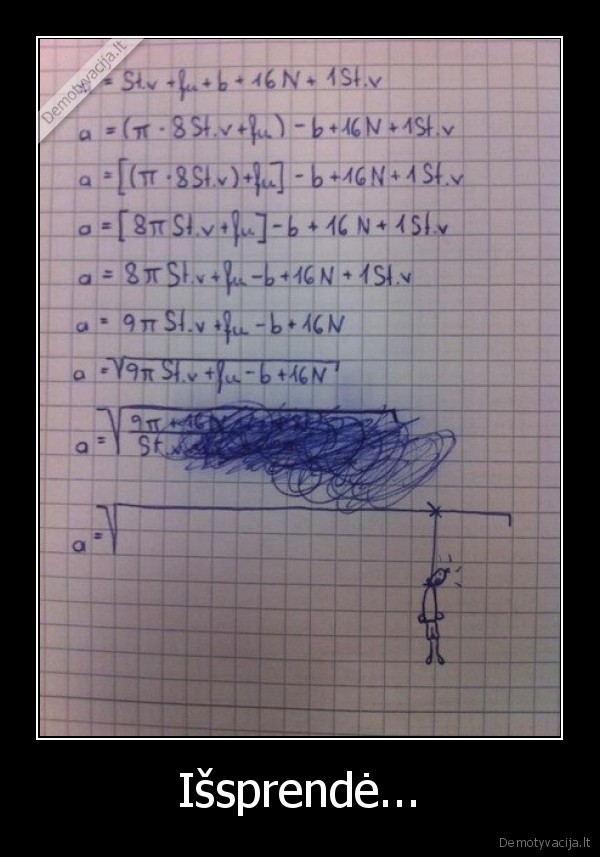 Demotyvacija.lt
= St.v + fu + b + 16N + 1St.v
a = (π · 8St.v + fu) - b + 16N + 1St.v
a = [(π · 8St.v) + fu] - b + 16N + 1St.v
a = [8π St.v + fu] - b + 16N + 1St.v
a = 8π St.v + fu - b + 16N + 1St.v
a = 9π St.v + fu - b + 16N
a = √9π St.v + fu - b + 16N
a = √9π + 16N
St.v
a = √
Išsprendė...
Demotyvacija.lt